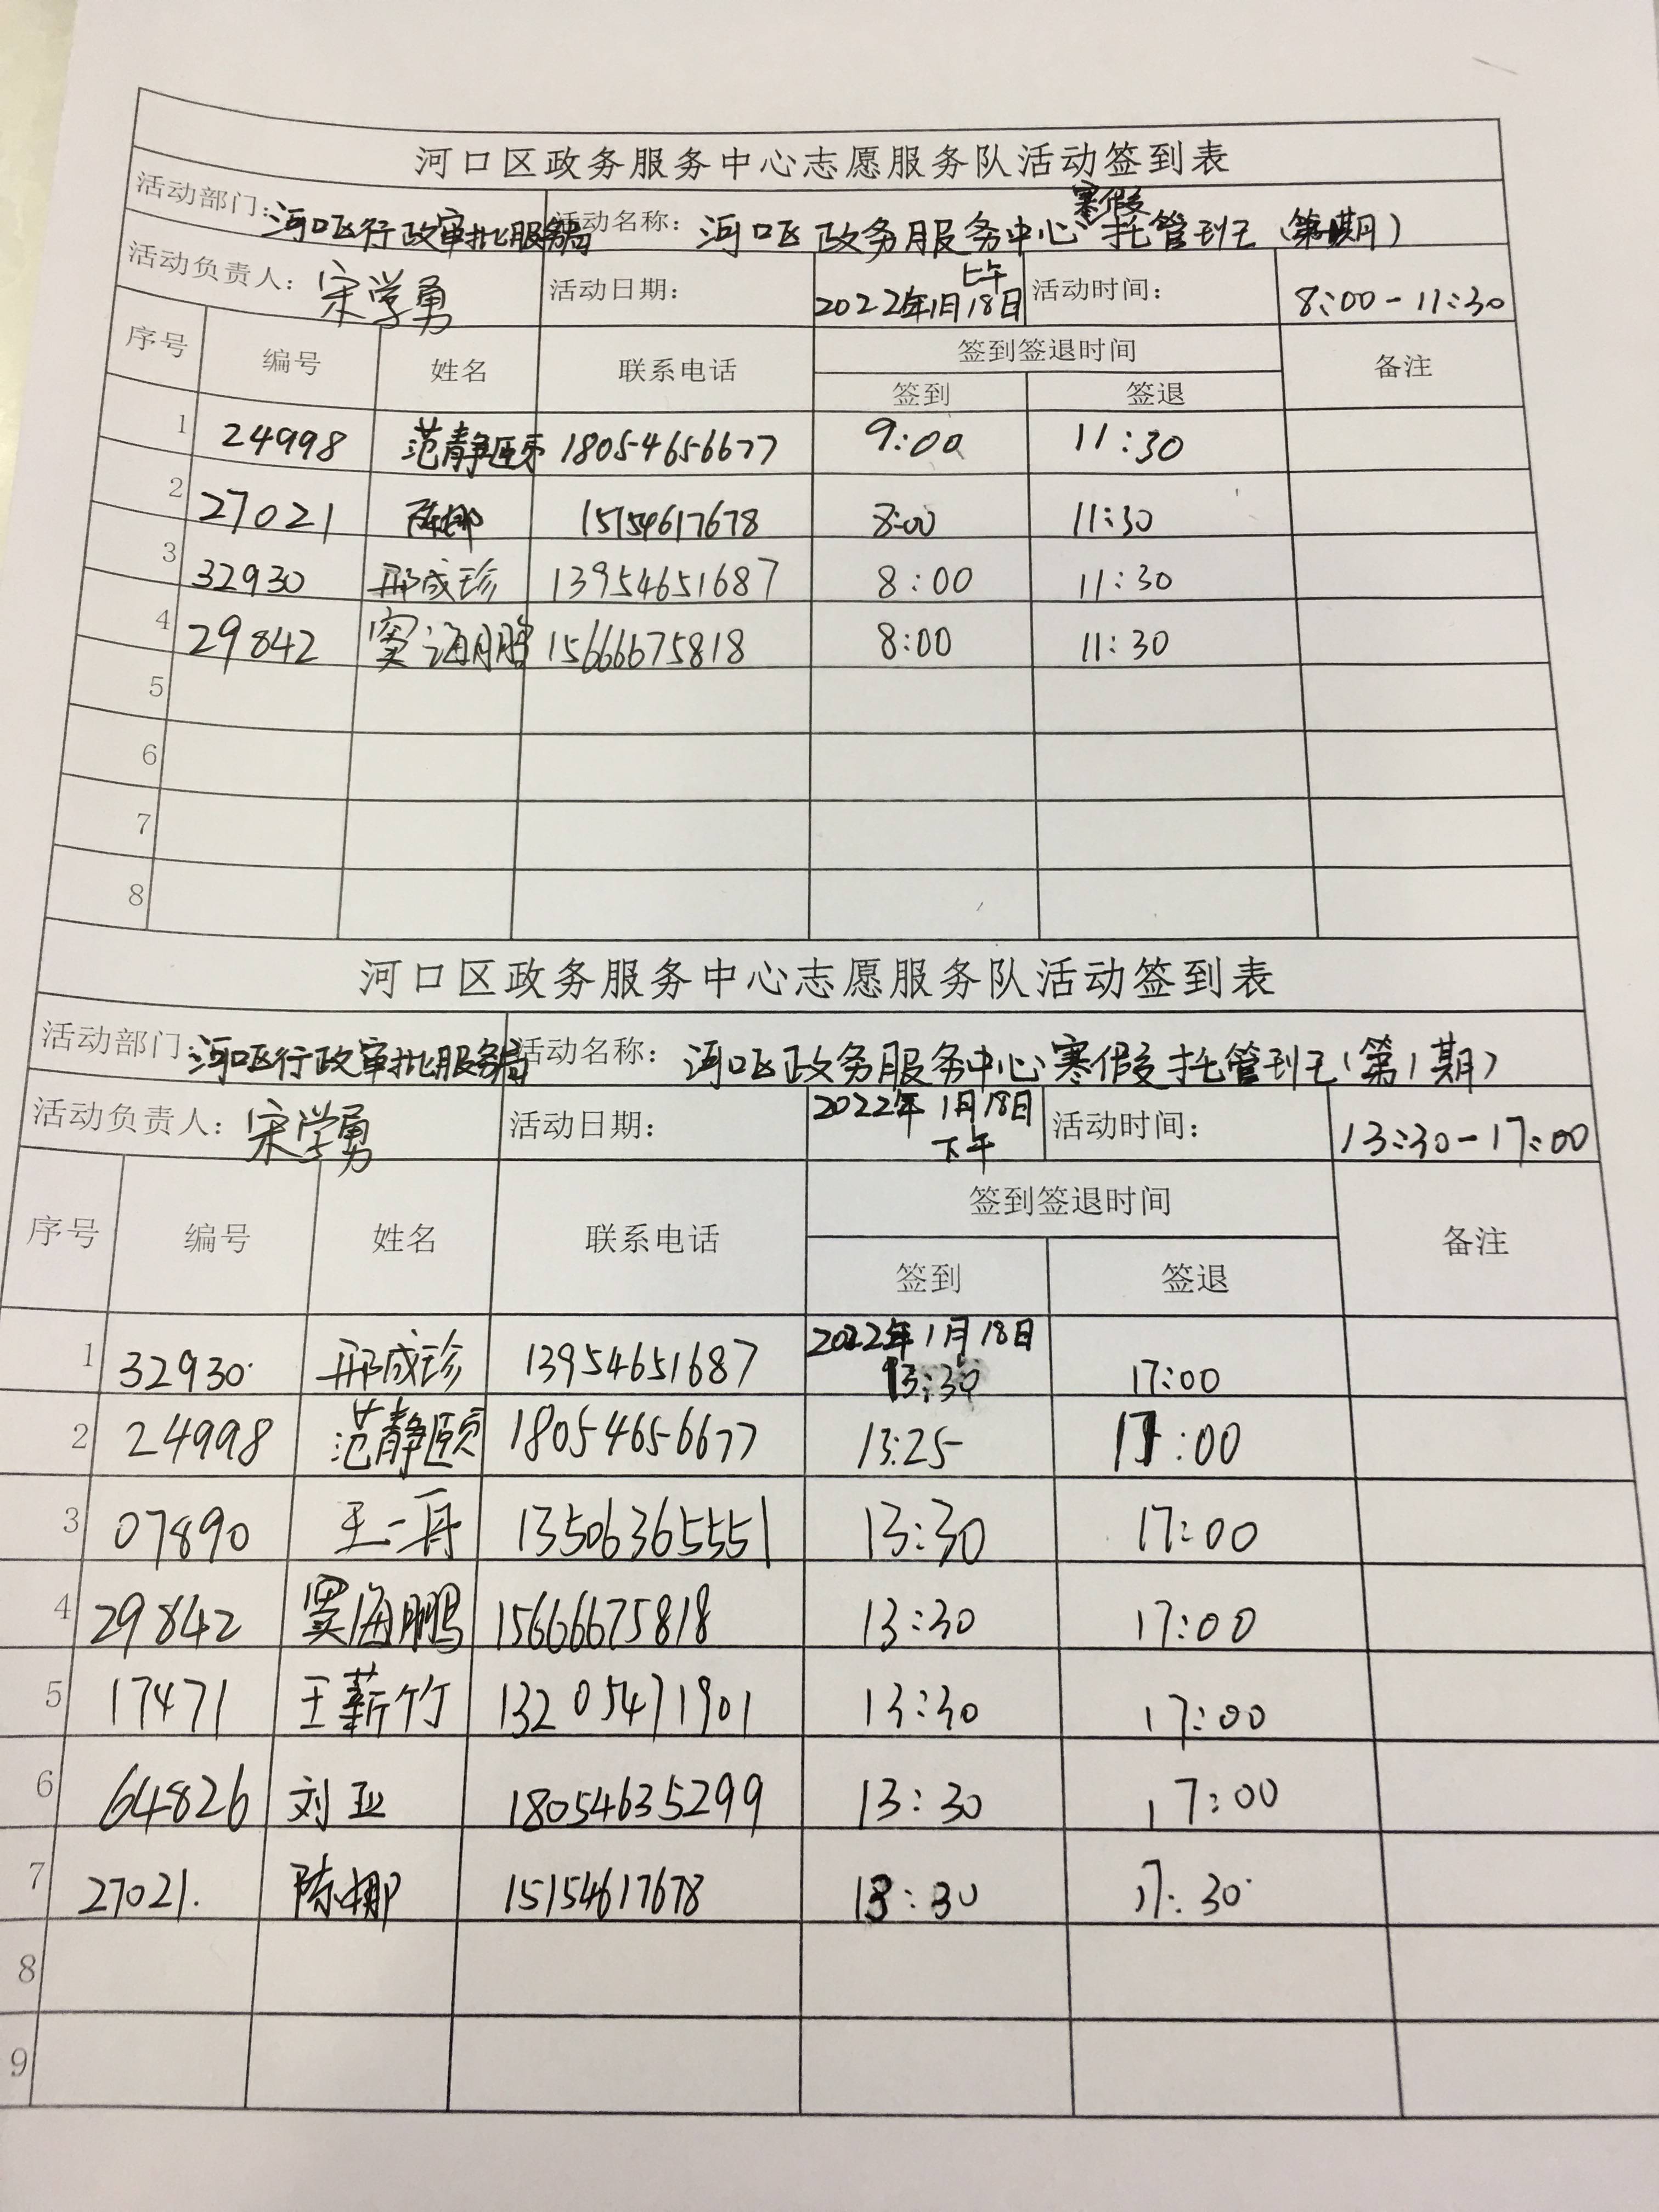 河口区政务服务中心志愿服务队活动签到表
活动部门: 河口区行政审批服务局 活动名称: 河口区政务服务中心寒假托管班(第1期)
活动负责人: 宋学勇 活动日期: 2022年1月18日上午 活动时间: 8:00-11:30
序号 编号 姓名 联系电话 签到签退时间 备注
签到 签退
1 24998 范静颐 18054656677 9:00 11:30
2 27021 陈娜 15154617678 8:00 11:30
3 32930 邢成珍 13954651687 8:00 11:30
4 29842 窦海鹏 15666675818 8:00 11:30
5
6
7
8
河口区政务服务中心志愿服务队活动签到表
活动部门: 河口区行政审批服务局 活动名称: 河口区政务服务中心寒假托管班(第1期)
活动负责人: 宋学勇 活动日期: 2022年1月18日下午 活动时间: 13:30-17:00
序号 编号 姓名 联系电话 签到签退时间 备注
签到 签退
1 32930 邢成珍 13954651687 2022年1月18日 13:30 17:00
2 24998 范静颐 18054656677 13:25 17:00
3 07890 王一丹 13506365551 13:30 17:00
4 29842 窦海鹏 15666675818 13:30 17:00
5 17471 王薪竹 13205471901 13:30 17:00
6 64826 刘亚 18054635299 13:30 17:00
7 27021. 陈娜 15154617678 13:30 17:30
8
9